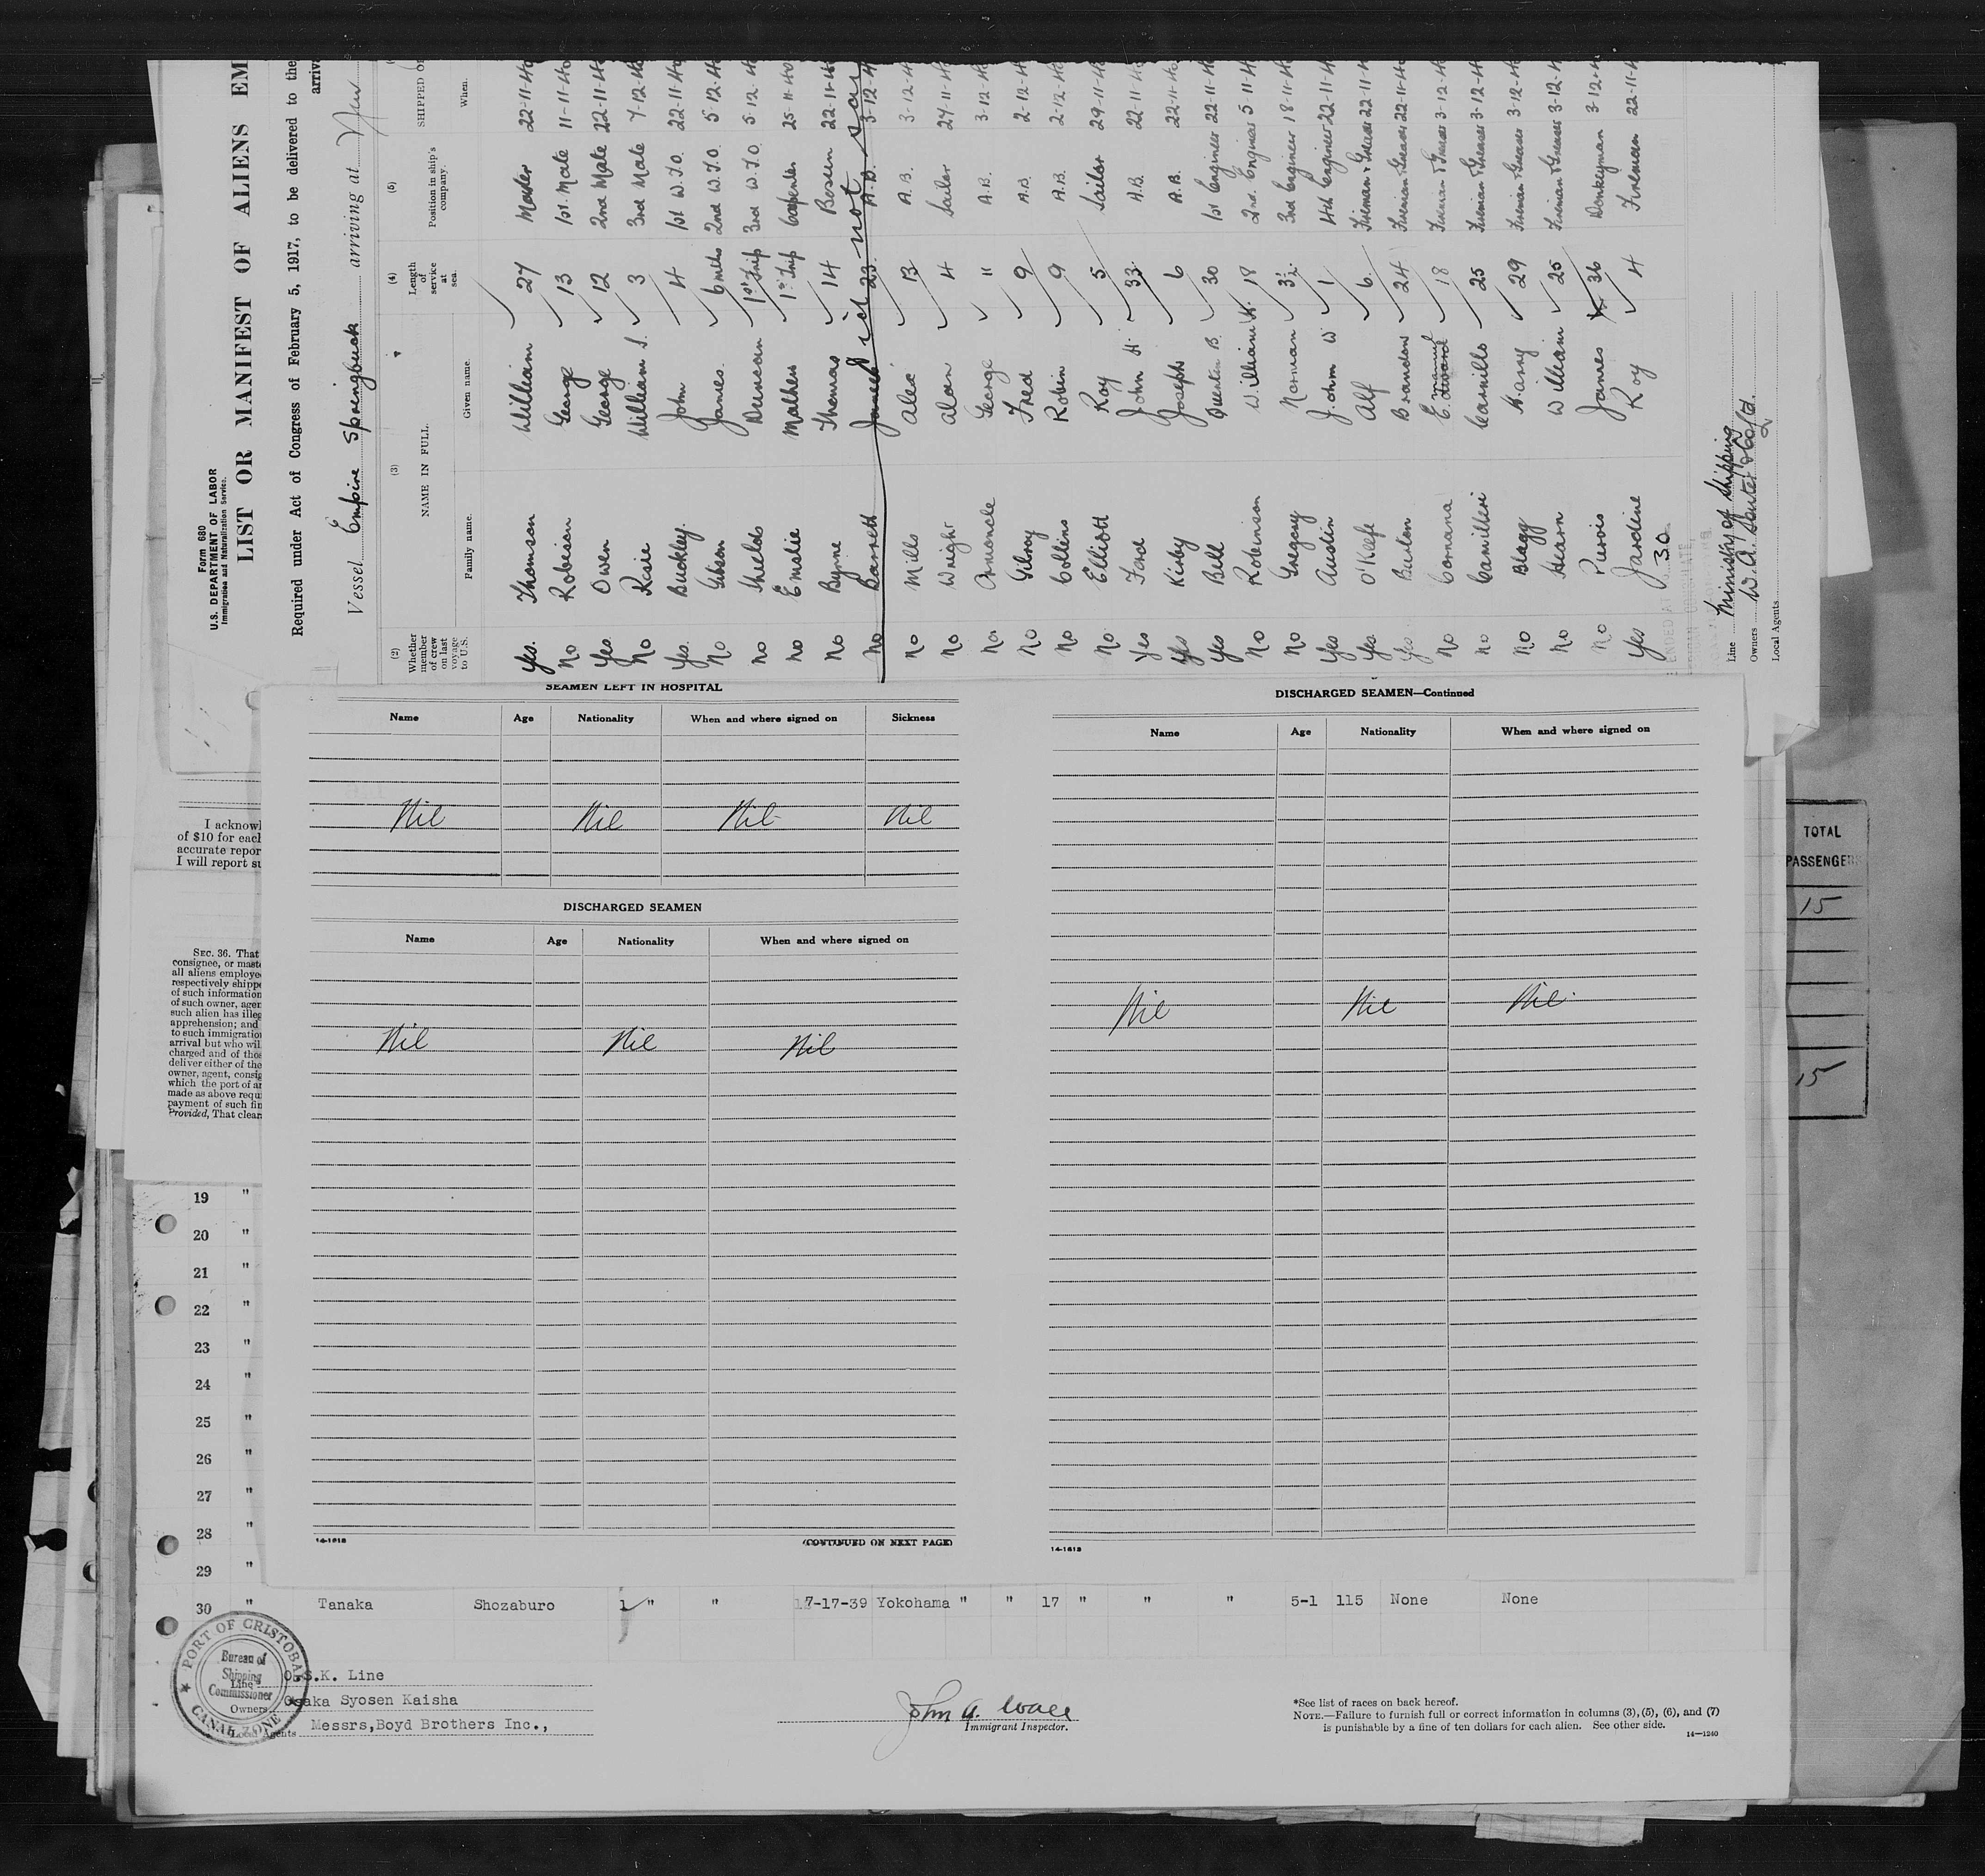 Form 680
U.S. DEPARTMENT OF LABOR
Immigration and Naturalization Service.
LIST OR MANIFEST OF ALIENS EM
Required under Act of Congress of February 5, 1917, to be delivered to the
arriva
Vessel Empire Springbuck arriving at New
(2) (3) (4) (5)
Whether member of crew on last voyage to U.S. NAME IN FULL Length of service at sea. Position in ship's company. SHIPPED O
Family name. Given name. When.
Yes. Thomson William 27 Master 22-11-40
No Robison George 13 1st. Mate 11-11-40
Yes Owen George 12 2nd Mate 22-11-40
No Rosie William S. 3 3rd Mate 7-12-40
Yes. Buckley John 4 1st W.T.O. 22-11-40
No Gibson James. 6 mths 2nd W.T.O. 5-12-40
No Shields Duncan 1st Trip 3rd W.T.O. 5-12-40
No Emslie Mathew 1st Trip Carpenter 25-11-40
No Byrne Thomas 14 Bosun 22-11-40
No Barrett James 23 A.B. 3-12-4
did not sai
No Mills Alec 13 A.B. 3-12-4
No Wright Alan 4 Sailor 27-11-40
No George " A.B. 3-12-40
No Gilroy Fred 9 A.B. 2-12-40
No Collins Robin 9 A.B. 2-12-40
No Elliott Roy 5 Sailor 29-11-40
Yes Ford John H. 33 A.B. 22-11-40
Yes Kirby Joseph 6 A.B. 22-11-40
Yes Bell Quentin B. 30 1st Engineer 22-11-40
No Robinson William K. 18 2nd. Engineer 5-11-40
No Gregory Norman 3½ 3rd Engineer 18-11-40
Yes Austin John W 1 4th Engineer 22-11-4
Yes O'Keefe Alf 6 Fireman & Greaser 22-11-4
Yes Burton Brandon 24 Fireman & Greaser 22-11-40
No Cornana 18 Fireman & Greaser 3-12-40
No Camilleri Carmillo 25 Fireman & Greaser 3-12-40
No Blagg Harry 29 Fireman & Greaser 3-12-40
No Hearn William 25 Fireman & Greaser 3-12-4
No Purvis James 36 Donkeyman 3-12-4
Yes Jardine Roy 4 Fireman 22-11-4
30
Line Ministry of Shipping
Owners W.A. Souter & Co Ltd.
Local Agents
SEAMEN LEFT IN HOSPITAL
Name Age Nationality When and where signed on Sickness
Nil Nil Nil Nil
DISCHARGED SEAMEN
Name Age Nationality When and where signed on
Nil Nil Nil
14-1613
(CONTINUED ON NEXT PAGE)
DISCHARGED SEAMEN—Continued
Name Age Nationality When and where signed on
Nil Nil Nil
14-1613
TOTAL
PASSENGERS
15
15
I acknowl
of $10 for each
accurate repor
I will report su
SEC. 36. That
consignee, or maste
all aliens employe
respectively shippe
of such information
of such owner, agen
such alien has illeg
apprehension; and
to such immigration
arrival but who will
charged and of thos
deliver either of the
owner, agent, consig
which the port of ar
made as above requi
payment of such fin
Provided, That clear
19 "
20 "
21 "
22 "
23 "
24 "
25 "
26 "
27 "
28 "
29 "
30 " Tanaka Shozaburo 1 " " 7-17-39 Yokohama " " 17 " " " 5-1 115 None None
PORT OF CRISTOBAL
Bureau of
Shipping
Commissioner
CANAL ZONE
Line O.S.K. Line
Owners Osaka Syosen Kaisha
Local Agents Messrs,Boyd Brothers Inc.,
John A. Wall
Immigrant Inspector.
*See list of races on back hereof.
NOTE.—Failure to furnish full or correct information in columns (3), (5), (6), and (7)
is punishable by a fine of ten dollars for each alien. See other side.
14—1240